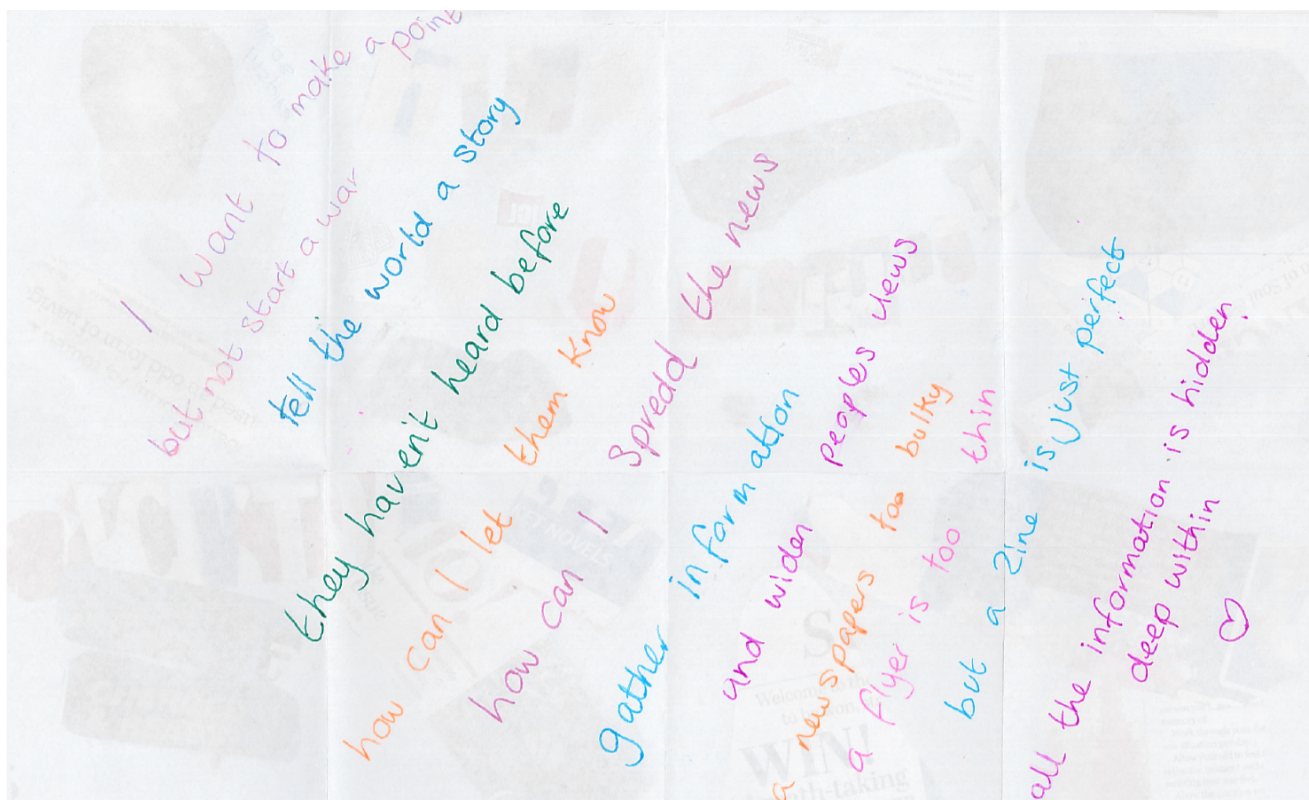 I want to make a point
but not start a war
tell the world a story
they haven't heard before
how can I let them know
how can I spredd the news
gather information
and widen peoples views
a newspapers too bulky
a flyer is too thin
but a zine is just perfect
all the information is hidden
deep within
Welcome to the
WIN!